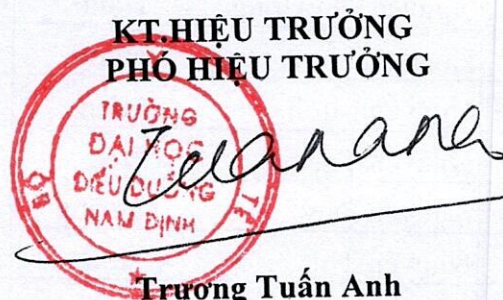 KT.HIỆU TRƯỞNG
PHÓ HIỆU TRƯỞNG
TRƯỜNG
ĐẠI HỌC
ĐIỀU DƯỠNG
NAM ĐỊNH
BỘ
Y TẾ
Trương Tuấn Anh